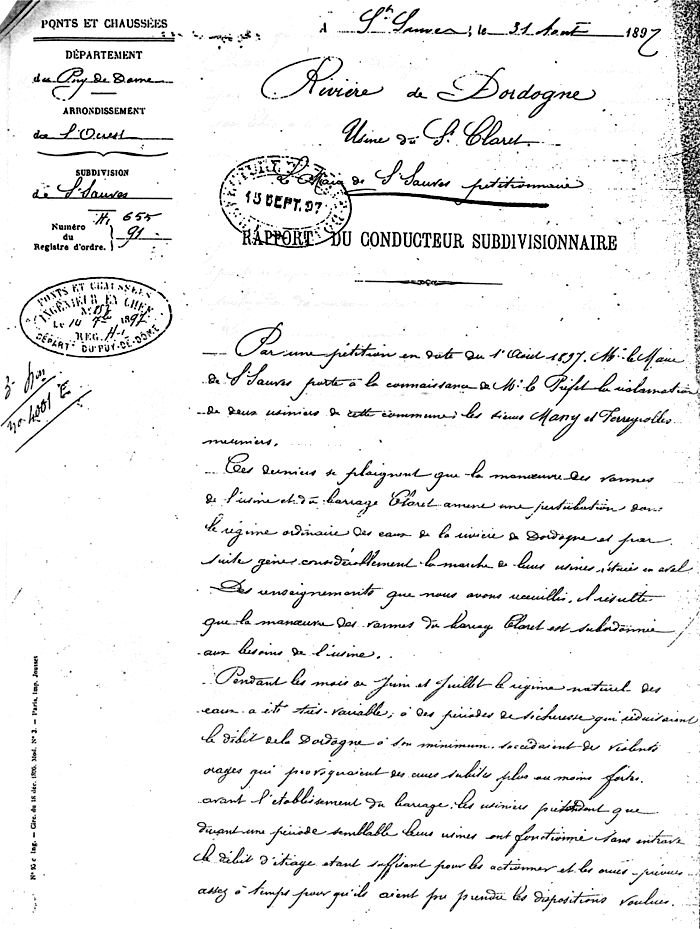 PONTS ET CHAUSSÉES
DÉPARTEMENT
du Puy de Dome
ARRONDISSEMENT
de l'Ouest
SUBDIVISION
de St Sauves
Hi 655
Numéro du Registre d'ordre. } 91
PONTS ET CHAUSSÉES
INGÉNIEUR EN CHEF
Le 14 7bre 1897
REG. H
DÉPART. DU PUY-DE-DÔME
no 4001 E
A St Sauves, le 31 Aout 1897
Rivière de Dordogne
Usine du St Claret
Le Maire de St Sauves pétitionnaire
15 SEPT. 97
RAPPORT DU CONDUCTEUR SUBDIVISIONNAIRE
Par une pétition en date du 1er Août 1897, Mr le Maire
de St Sauves porte à la connaissance de Mr le Préfet la réclamation
de deux usiniers de cette commune; les sieurs Many et Ferreyrolles
meuniers.
Ces derniers se plaignent que la manœuvre des vannes
de l'usine et du barrage Claret amène une perturbation dans
le régime ordinaire des eaux de la rivière de Dordogne et par
suite gêne considérablement la marche de leurs usines, situées en aval
Des renseignements que nous avons recueillis, il résulte
que la manœuvre des vannes du barrage Claret est subordonnée
aux besoins de l'usine.
Pendant les mois de Juin et Juillet le régime naturel des
eaux a été très-variable; à des périodes de sécheresse qui réduisaient
le débit de la Dordogne à son minimum, succédaient des violents
orages qui provoquaient des crues subites plus ou moins fortes.
avant l'établissement du barrage; les usiniers prétendent que
durant une période semblable leurs usines ont fonctionné sans entrave
le débit d'étiage étant suffisant pour les actionner et les crues prévues
assez à temps pour qu'ils aient pu prendre les dispositions voulues.
N° 85 c Ing. — Circ. du 18 déc. 1878. Mod. N° 3. — Paris, Imp. Jousset